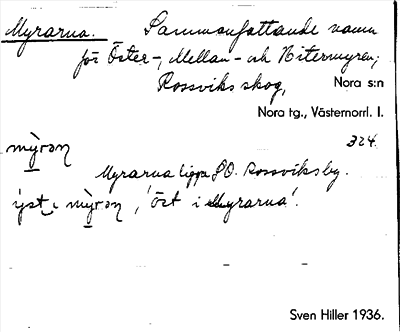 Myrarna. Sammanfattande namn
för Öster-, Mellan- och Västermyren;
Rossviks skog, Nora s:n
Nora tg., Västernorrl. l.
324.
mỳrɑn
Myrarna ligga SO. Rossviks by.
ı̀st i mỳrɑn, 'Öst i Myrarna'.
Sven Hiller 1936.